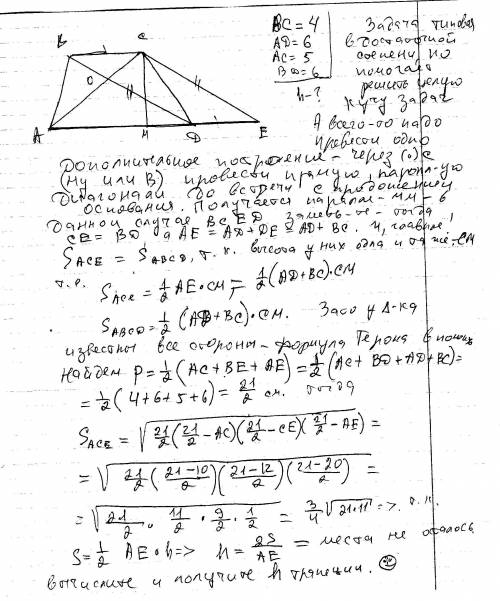 BC = 4
AD = 6
AC = 5
BD = 6
h - ?
Задача типовая
в достаточной
степени, но
помогает
решить целую
кучу задач
А всего-то надо
провести одно
B C
O
A M D E
Дополнительное построение - через (·) C
(ну или B) провести прямую, паралл-ую
диагонали до встречи с продолжением
основания. Получается паралел-мм - в
данной случае BCED заметь-те - тогда
CE = BD а AE = AD + DE = AD + BC. И, главное,
S ACE = S ABCD, т.к. высота у них одна и та же - CM
т.е. S ACE = 1/2 AE · CM = 1/2 (AD + BC) · CM
S ABCD = 1/2 (AD + BC) · CM. Зато у Δ-ка
известны все стороны - формула Герона в помощь
Найдем P = 1/2 (AC + BE + AE) = 1/2 (AC + BD + AD + BC) =
= 1/2 (4 + 6 + 5 + 6) = 21/2 см. тогда
S ACE = √(21/2 (21/2 - AC)(21/2 - CE)(21/2 - AE)) =
= √(21/2 (21-10/2)(21-12/2)(21-20/2)) =
= √(21/2 · 11/2 · 9/2 · 1/2) = 3/4 √21·11 => т.к.
S = 1/2 AE · h => h = 2S/AE = места не осталось
вычислите и получите h трапеции.